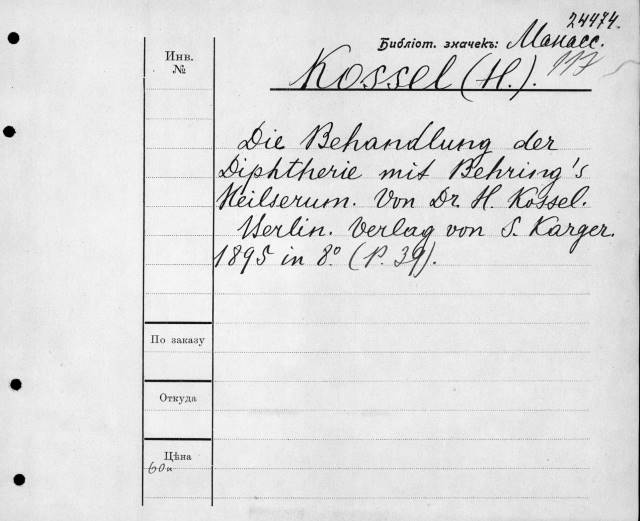 24474.
Библіот. значекъ: Манасс.
117
Инв.
№
Kossel (H.).
Die Behandlung der
Diphtherie mit Behring's
Heilserum. Von Dr. H. Kossel.
Berlin. Verlag von S. Karger.
1895 in 8.° (P. 39).
По заказу
Откуда
Цѣна
60к